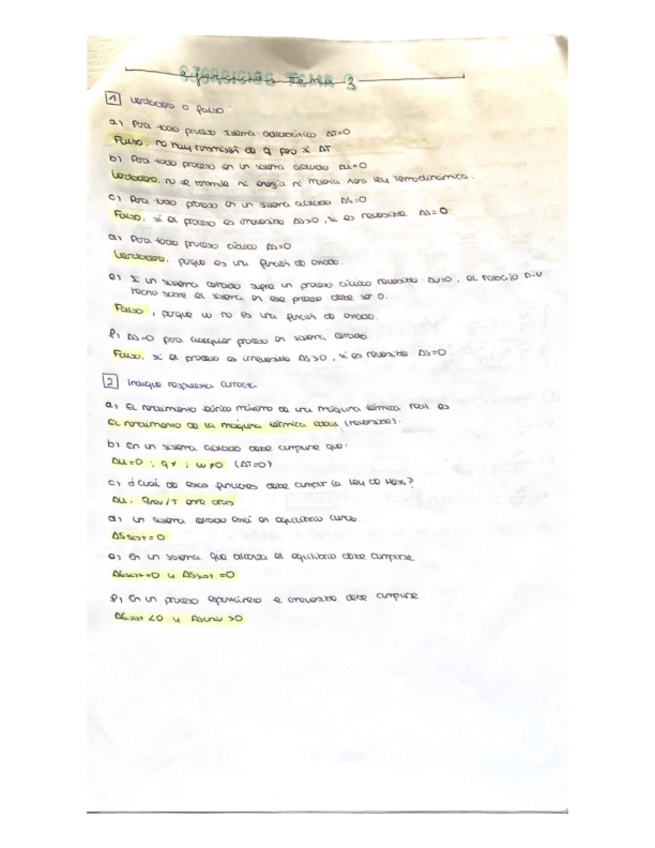 ejercicios tema 3
1 Verdadero o falso
a) Para todo proceso sistema adiabático ΔT=0
Falso, no hay transmisión de q pero sí ΔT
b) Para todo proceso en un sistema aislado ΔU=0
Verdadero, no se transmite ni energía ni materia 1era ley termodinámica.
c) Para todo proceso en un sistema aislado ΔS=0
Falso, si el proceso es irreversible ΔS>0, si es reversible ΔS=0
d) Para todo proceso cíclico ΔS=0
Verdadero, porque es una función de estado.
e) Si un sistema cerrado sufre un proceso cíclico reversible, el trabajo P-V
hecho sobre el sistema en ese proceso debe ser 0.
Falso, porque w no es una función de estado.
f) ΔS=0 para cualquier proceso en sistema cerrado
Falso, si el proceso es irreversible ΔS>0, si es reversible ΔS=0
2 Indique respuesta correcta
a) El rendimiento teórico máximo de una máquina térmica real es
el rendimiento de la máquina térmica ideal (reversible).
b) En un sistema aislado debe cumplirse que:
ΔU=0 ; q ; w≠0 (ΔT=0)
c) ¿Cuál de esas funciones debe cumplir la ley de Hess?
ΔU, qrev/T entre otras
d) Un sistema cerrado está en equilibrio cuando.
ΔSsist=0
e) En un sistema que alcanza el equilibrio debe cumplirse
ΔGsist=0 y =0
f) En un proceso espontáneo e irreversible debe cumplirse
ΔGsist<0 y ΔSuniv>0